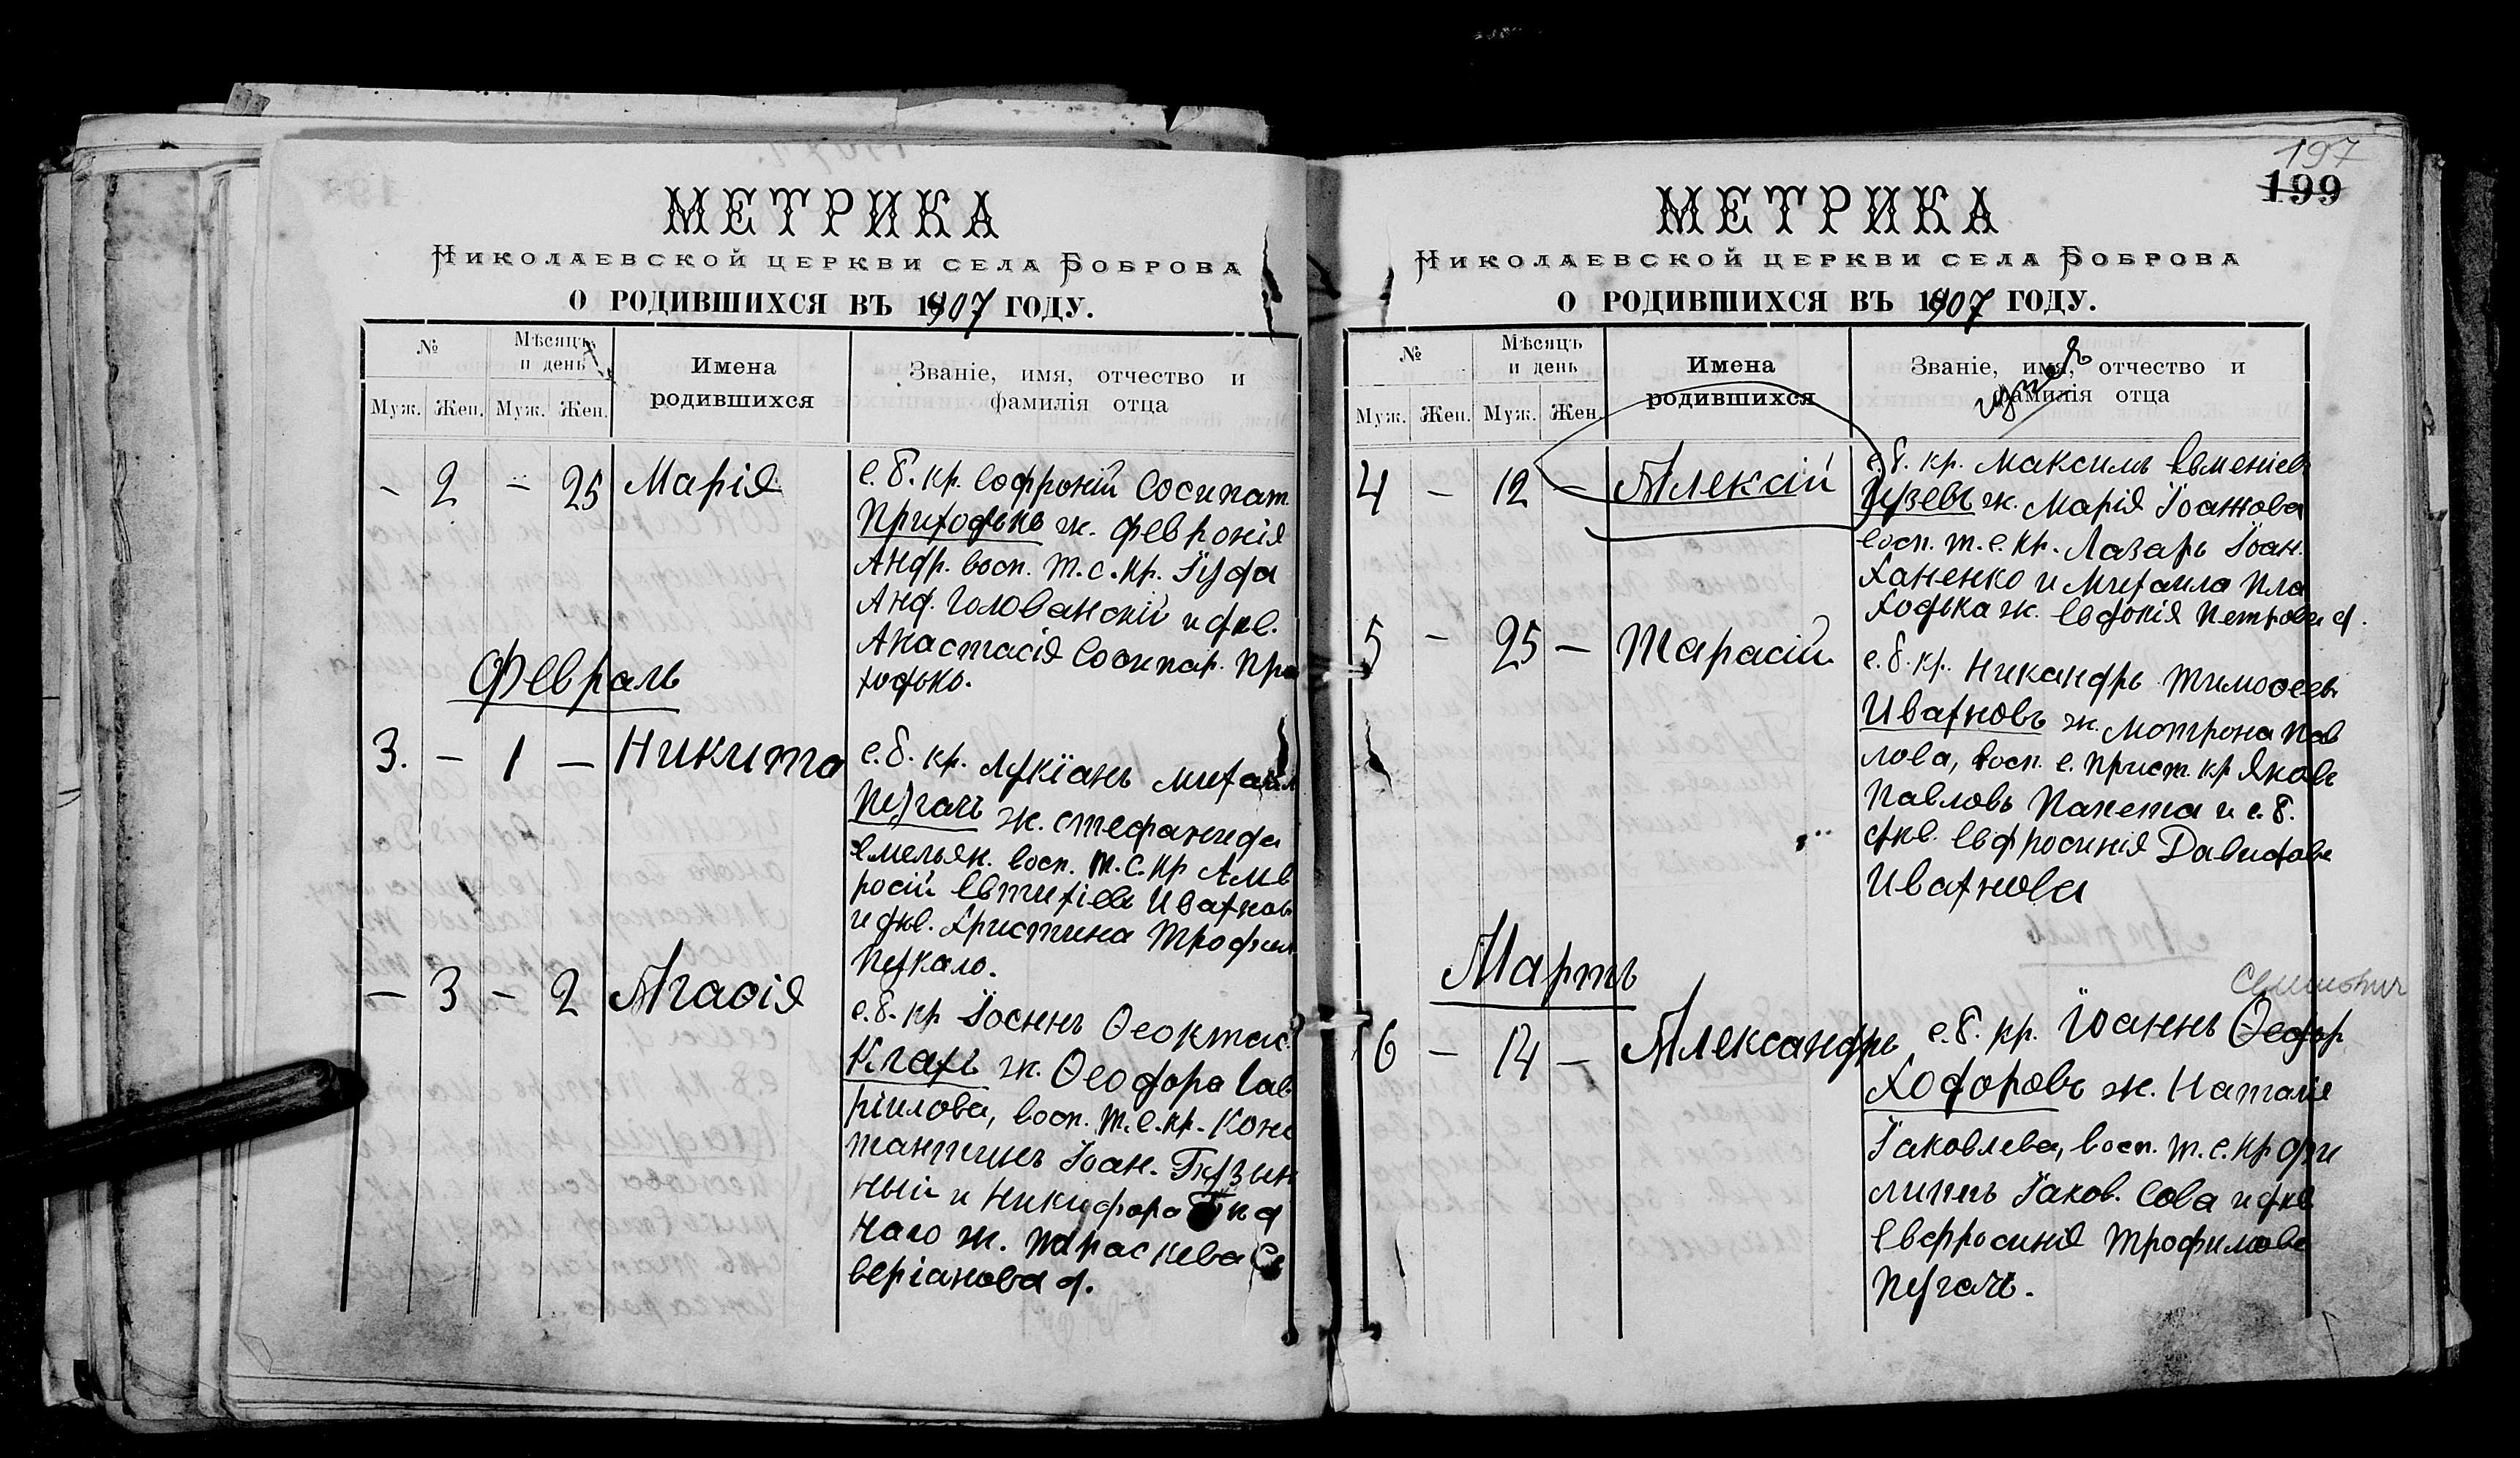 МЕТРИКА
НИКОЛАЕВСКОЙ ЦЕРКВИ СЕЛА БОБРОВА
О РОДИВШИХСЯ ВЪ 1907 ГОДУ.
№
Мѣсяцъ и день
Имена родившихся
Званіе, имя, отчество и фамилія отца
Муж. Жен. Муж. Жен.
- 2 - 25 Марія
с. б. кр. Софроній Сосипат.
Приходько ж. Феврокія
Андр. восп. т. с. кр. Іуда
Анд. Голованскій и дкв.
Анастасія Сосипат. При
ходько.
Февраль
3. - 1 - Никита
с. б. кр. Лукіанъ Михаил
Пугачъ ж. Стефанида
Емельян. восп. т. с. кр Амв
росій Евтихіевъ Ивахновъ
и дкв. Христина Трофим
Пужало.
- 3 - 2 Агафія
с. б. кр Іоаннъ Ѳеоктис.
Кгахъ ж. Ѳеодора Гав
ріилова, восп. т. с. кр. Конс
тантинъ Іоан. Гузын
ный и Никифора Гна
наго ж. Параскева Се
веріанова д.
197
199
МЕТРИКА
НИКОЛАЕВСКОЙ ЦЕРКВИ СЕЛА БОБРОВА
О РОДИВШИХСЯ ВЪ 1907 ГОДУ.
№
Мѣсяцъ и день
Имена родившихся
Званіе, имя, отчество и фамилія отца
Муж. Жен. Муж. Жен.
4 - 12 - Алексій
с. б. кр. Максимъ Евменіевъ
Гузевъ ж. Марія Іоаннова
восп. т. с. кр. Лазарь Іоан.
Ханенко и Михаила Пла
ходька ж. Евдокія Петрова д.
5 - 25 - Тарасій
с. б. кр. Никандръ Тимоѳеевъ
Ивахновъ ж. Мотрона Пав
лова, восп. с. Прист. кр Яковъ
Павловъ Папета и с. б.
дкв. Евфросинія Давидова
Ивахнова
Мартъ
6 - 14 - Александръ
с. б. кр. Іоаннъ Ѳедор
Ходоровъ ж. Наталія
Іаковлева, восп. т. с. кр Фи
липпъ Іаков. Сова и дкв
Евфросинія Трофимова
Пугачъ.